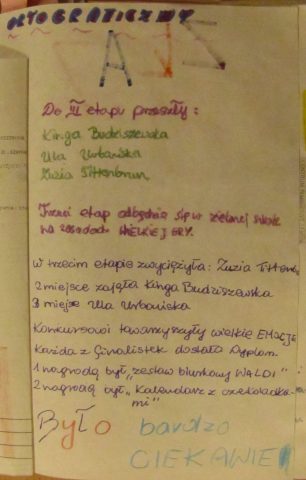 ORTOGRAFICZNY
AS
Do III etapu przeszły:
Kinga Budziszewska
Ula Urbańska
Zuzia Tittenbrun
Trzeci etap odbędzie się w zielonej
na zasadach WIELKIEJ GRY.
W trzecim etapie zwyciężyła: Zuzia
2 miejsce zajęła Kinga Budziszewska
3 miejsce Ula Urbańska
Konkursowi towarzyszyły wielkie EMOCJE
Każda z finalistek dostała dyplom.
1 nagrodą był „zestaw biurkowy WALDI"
2 nagrodą był „Kalendarz z czekoladka-
mi"
BYŁO bardzo
CIEKAWIE!